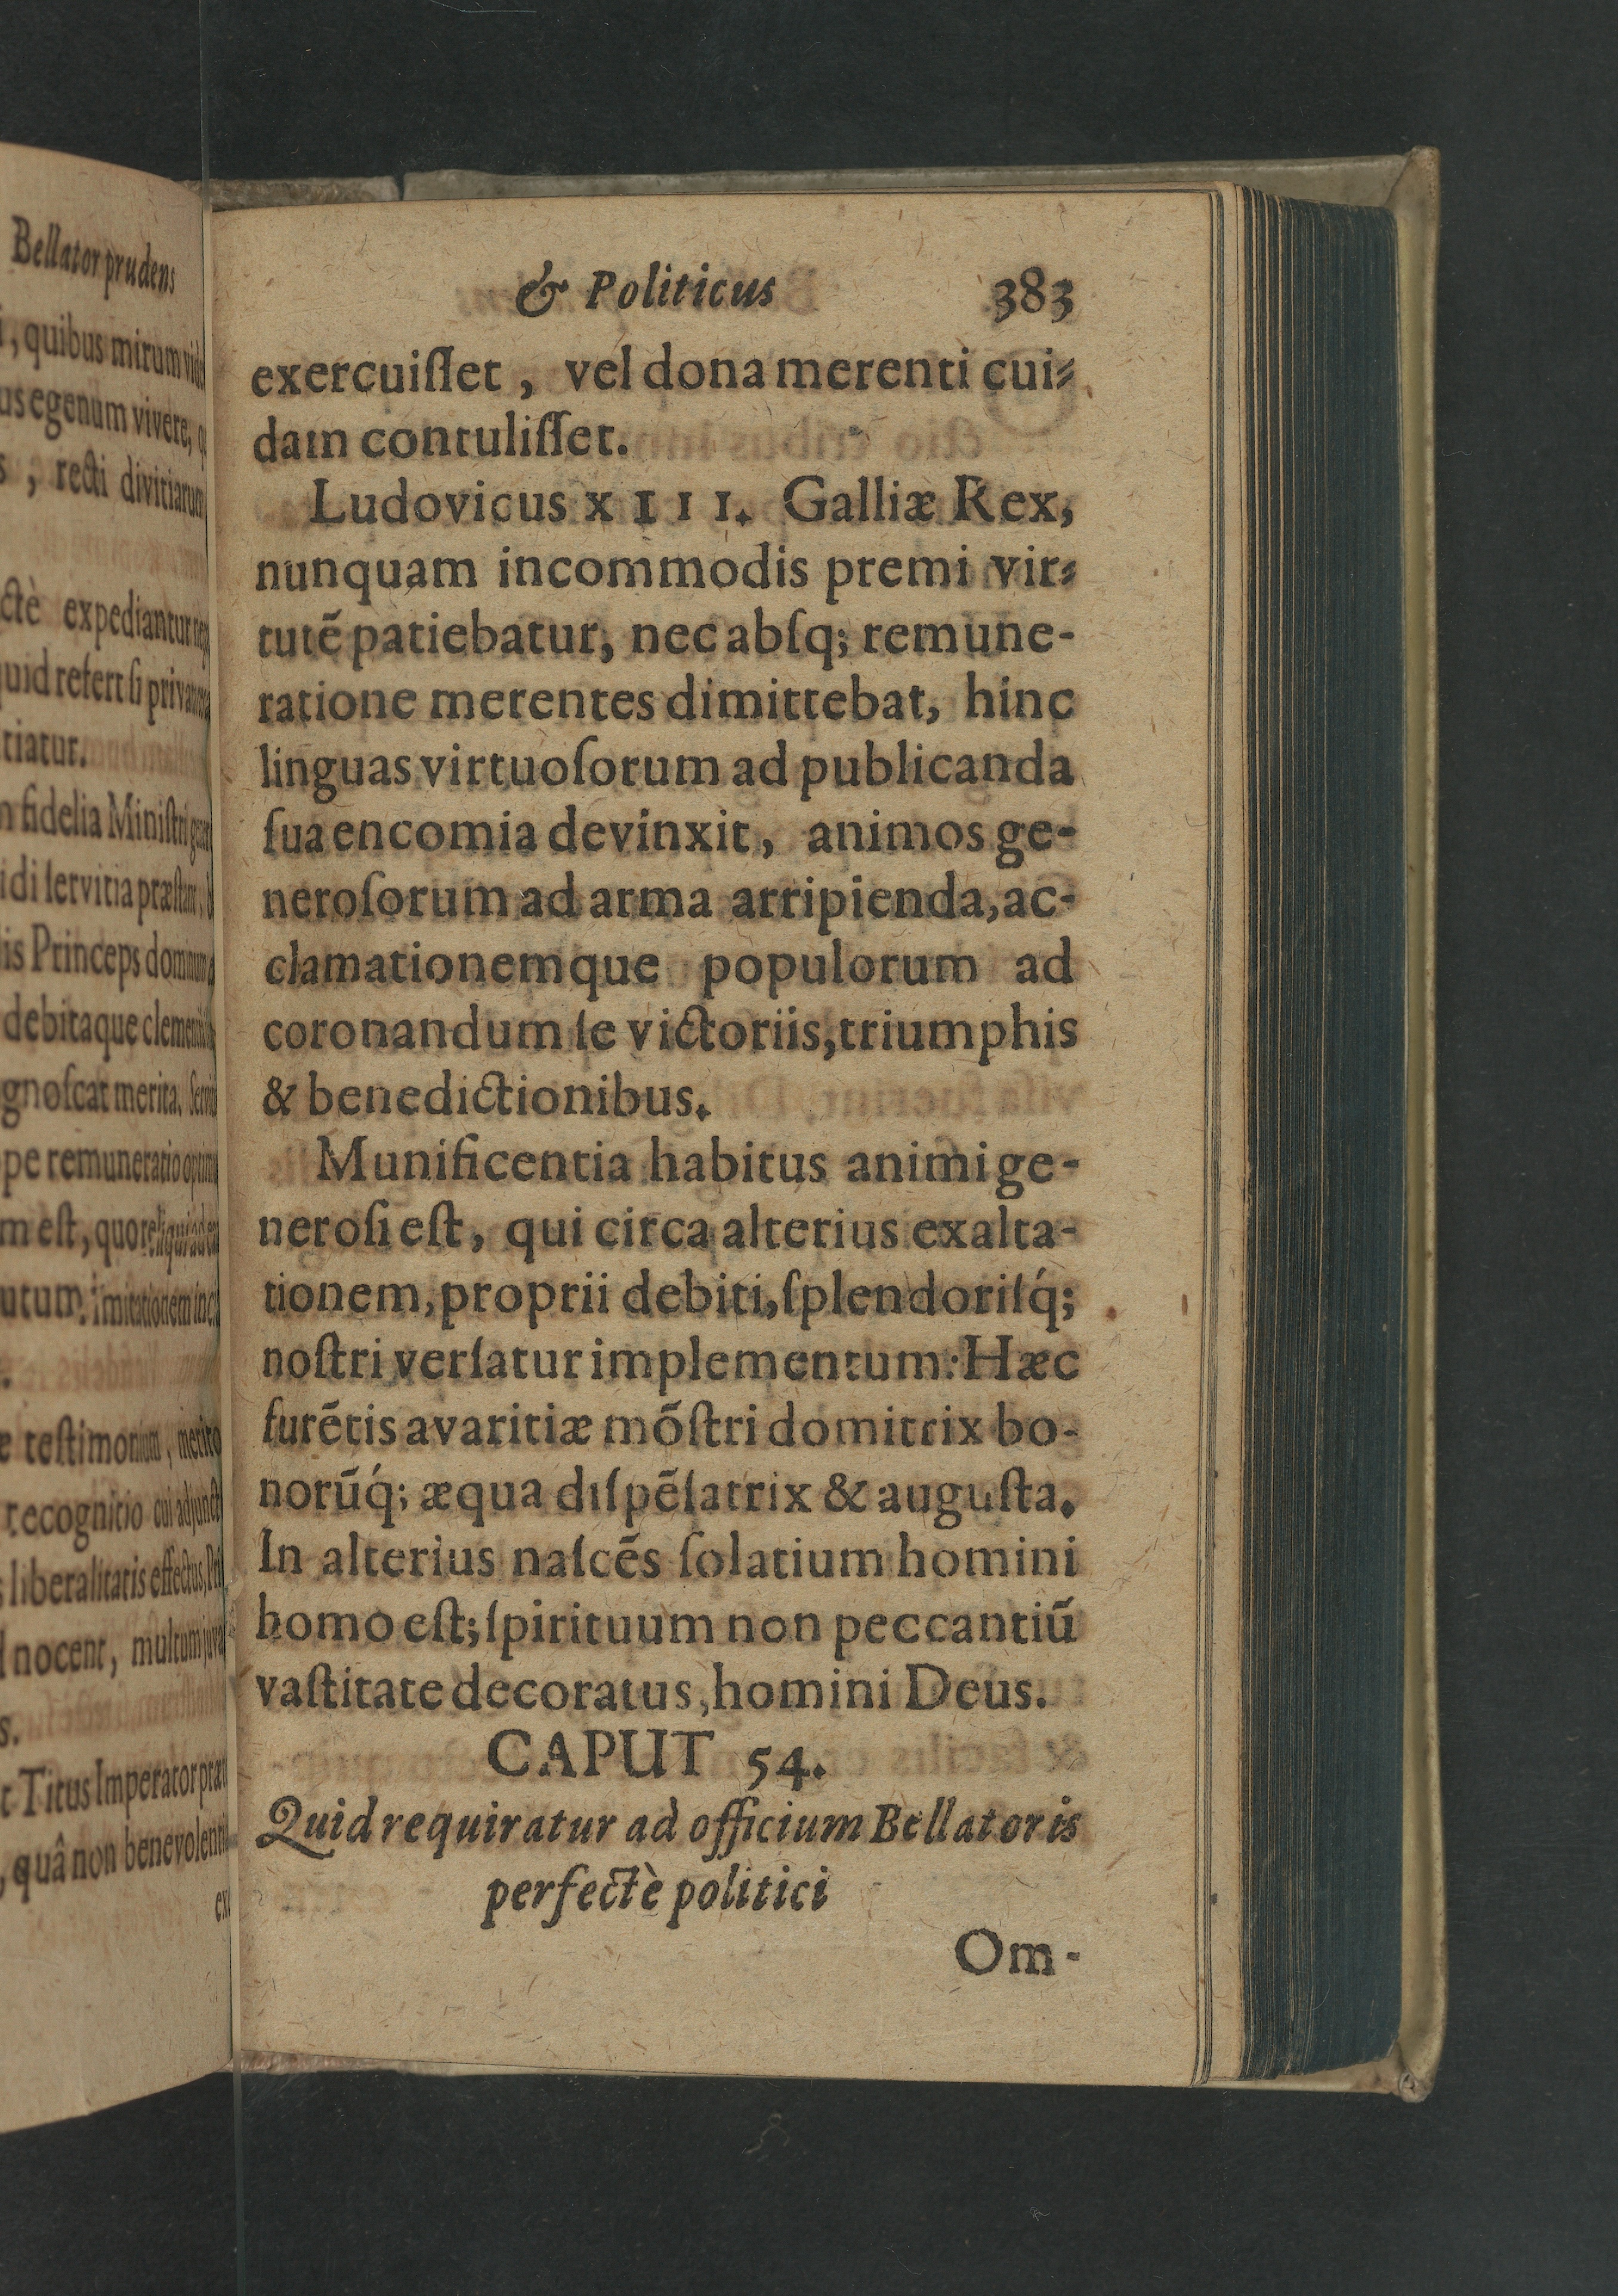 Bellator prudens
, quibus mirum
us egenum vivere,
, recti divitiarum
ctè expediantur
quid refert ſi
tiatur.
fidelia Miniſtri
ſervitia
is Princeps
debitaque
gnoſcat merita.
pe remuneratio
m eſt, quo reliqui ad
imitationem
teſtimonium, merito
recognitio cui
liberalitatis effectus,
nocent, multum
Titus Imperator
, quâ non
& Politicus 383
exercuiſſet, vel dona merenti cui-
dam contuliſſet.
Ludovicus XIII. Galliæ Rex,
nunquam incommodis premi vir-
tutẽ patiebatur, nec abſq; remune-
ratione merentes dimittebat, hinc
linguas virtuoſorum ad publicanda
ſua encomia devinxit, animos ge-
neroſorum ad arma arripienda, ac-
clamationemque populorum ad
coronandum ſe victoriis, triumphis
& benedictionibus.
Munificentia habitus animi ge-
neroſi eſt, qui circa alterius exalta-
tionem, proprii debiti, ſplendoriſq́;
noſtri verſatur implementum: Hæc
furẽtis avaritiæ mõſtri domitrix bo-
norũq́; æqua diſpẽſatrix & auguſta.
In alterius naſcẽs ſolatium homini
homo eſt; ſpirituum non peccantiũ
vaſtitate decoratus, homini Deus.
CAPUT 54.
Quid requiratur ad officium Bellatoris
perfectè politici
Om-